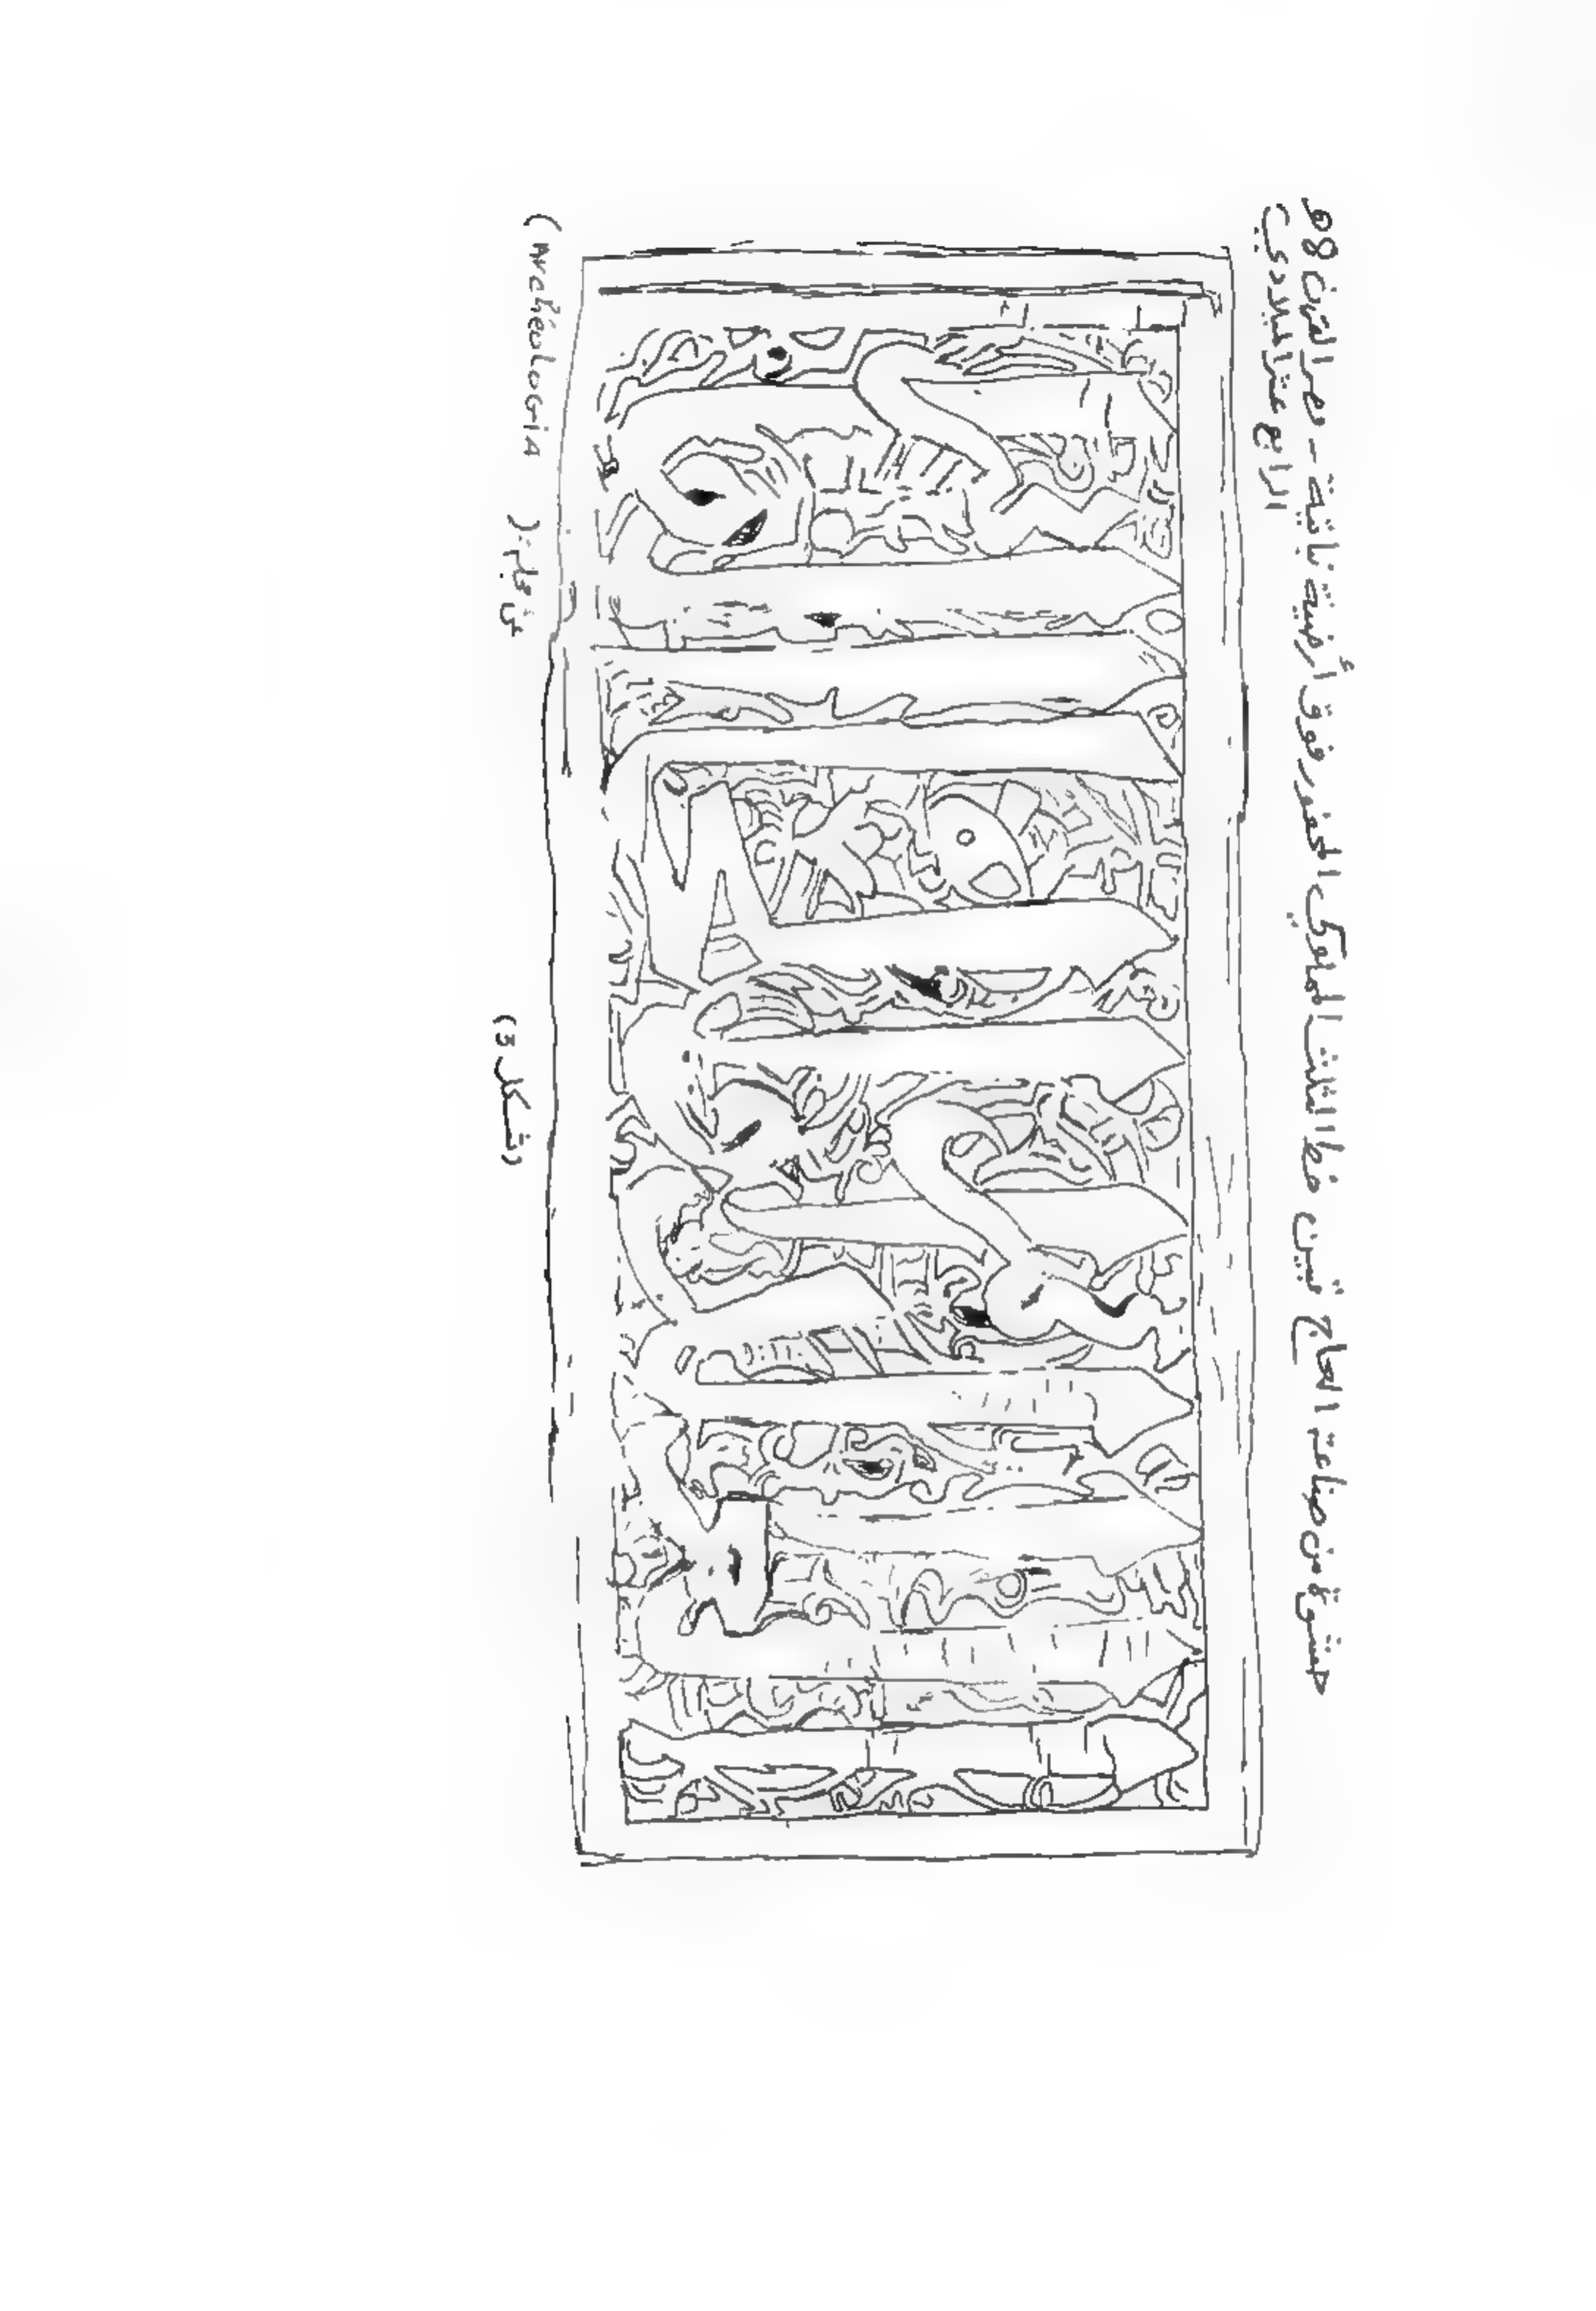 حشوة من صناعة العاج تبين خط الثلث المملوكي المحفور فوق أرضية نباتية - مصر القرن 8 هـ
الرابع عشر الميلادي
عن مجلة: (Archéologia)
(شكل 3)